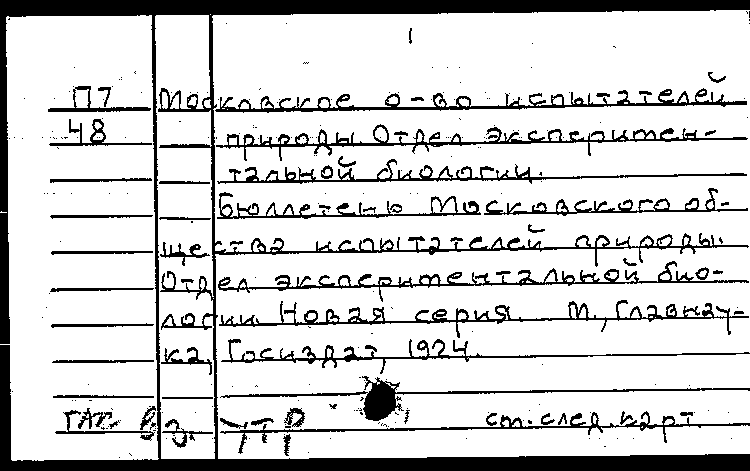 1
П7 Московское о-во испытателей
48 природы. Отдел эксперимен-
тальной биологии.
Бюллетень Московского об-
щества испытателей природы.
Отдел экспериментальной био-
логии. Новая серия. М., Главнау-
ка, Госиздат, 1924.
вз. УТР см. след. карт.